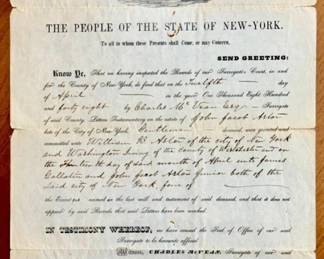 THE PEOPLE OF THE STATE OF NEW-YORK.
To all to whom these Presents shall Come, or may Concern,
SEND GREETING:
Know Ye, That we having inspected the Records of our Surrogate's Court, in and
for the County of New York, do find that on the Twelfth day
of April in the year Eighteen Hundred
and forty eight by Charles Mc Vean Esq. Surrogate
of said County, Letters Testamentary on the estate of John Jacob Astor
late of the City of New York Gentleman deceased, was granted and
committed unto William B. Astor of the city of New York
and Washington Irving of the County of Westchester and on
the day of said month of April unto James
Gallatin and John Jacob Astor Junior both of the
said city of New York, four of
the Executors named in the last will and testament of said deceased, and that it does not
appear by said Records that said Letters have been revoked.
IN TESTIMONY WHEREOF, we have caused the Seal of Office of our said
Surrogate to be hereunto affixed.
Witness, CHARLES McVEAN, Surrogate of said